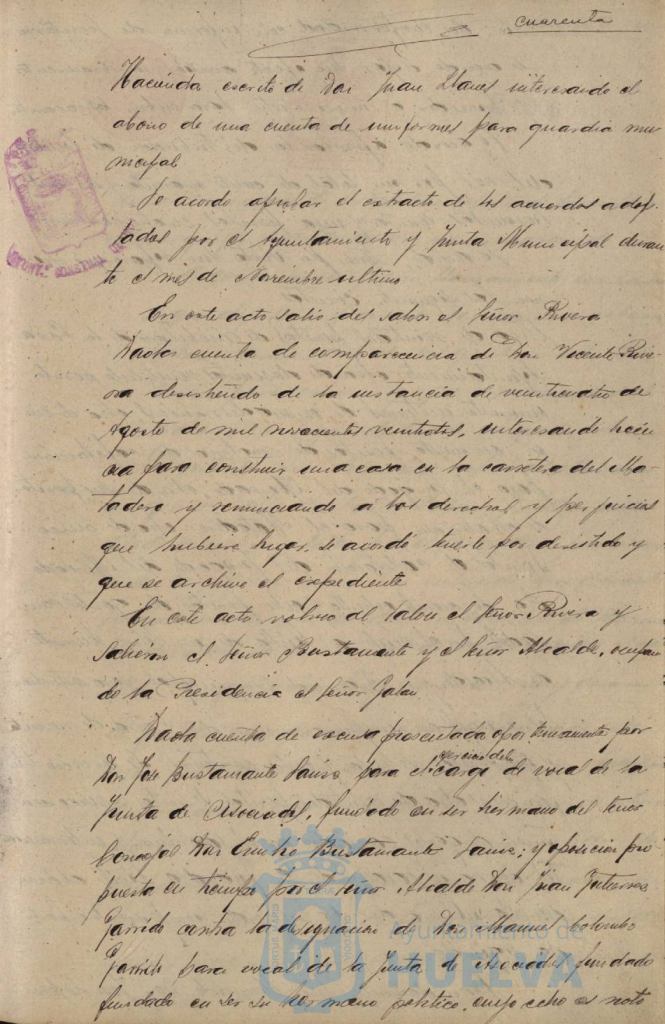 cuarenta
Hacienda escrito de Don Juan Llanes interesando el
abono de una cuenta de uniformes para guardia mu
nicipal
Se acordo aprobar el extracto de los acuerdos adop
tados por el Ayuntamiento y Junta Municipal duran
te el mes de Noviembre ultimo
En este acto salio del salon el Señor Rivera
Dada cuenta de comparecencia de Don Vicente Rive
ra desistiendo de la instancia de veinticuatro de
Agosto de mil novecientos veintitres, interesando licen
cia para construir una casa en la carretera del Ma
tadero y renunciando a los derechos y perjuicios
que hubiere lugar, se acordó tenerle por desistido y
que se archive el expediente
En este acto volvio al salon el Señor Rivera y
salieron el Señor Bustamante y el Señor Alcalde, ocupan
do la Presidencia el Señor Galan
Dada cuenta de excusa presentada oportunamente por
Don Jose Bustamante para el ejercicio del cargo de vocal de la
Junta de Asociados, fundado en ser hermano del señor
Concejal Don Emilio Bustamante; y oposicion pro
puesta en tiempo por el señor Alcalde Don Juan Gutierrez
Garrido contra la designacion de Don Manuel Colombo
Garrido para vocal de la Junta de Asociados fundado
fundado en ser su hermano politico, cuyo echo es noto
Ayuntamiento de
HUELVA